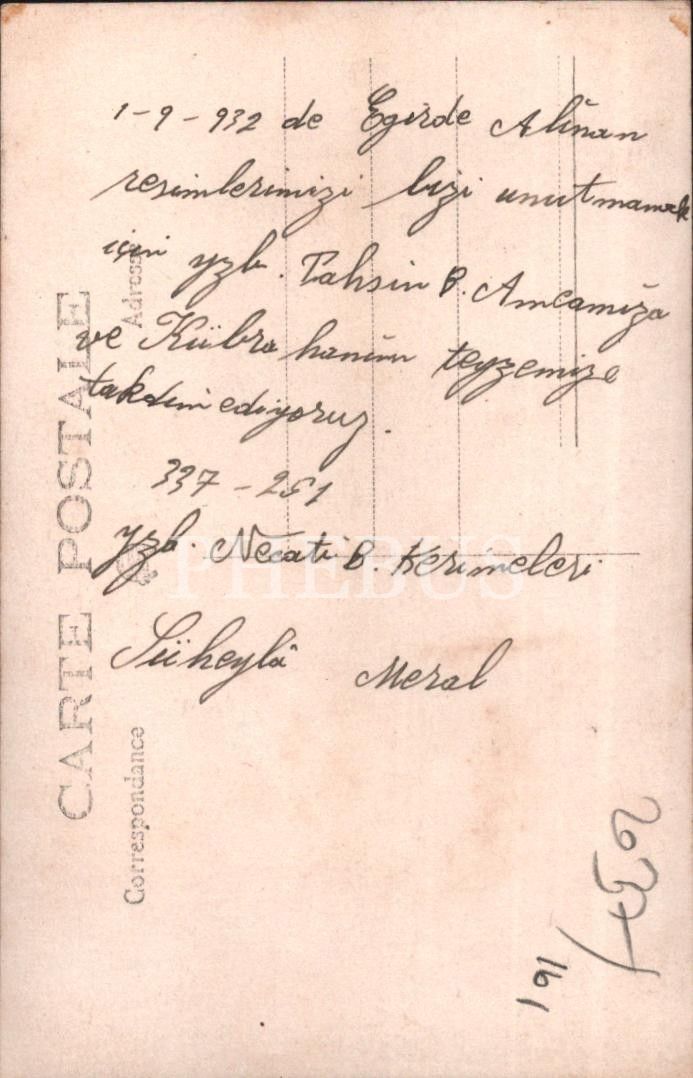 1-9-932 de Egirde Alınan
resimlerimizi bizi unutmamak
için yzb. Tahsin B. Amcamıza
ve Kübra hanım teyzemize
takdim ediyoruz.
337-251
yzb. Necati B. Kerimeleri
Süheylâ Meral
CARTE POSTALE
Correspondance
Adresse
PHEBUS
191